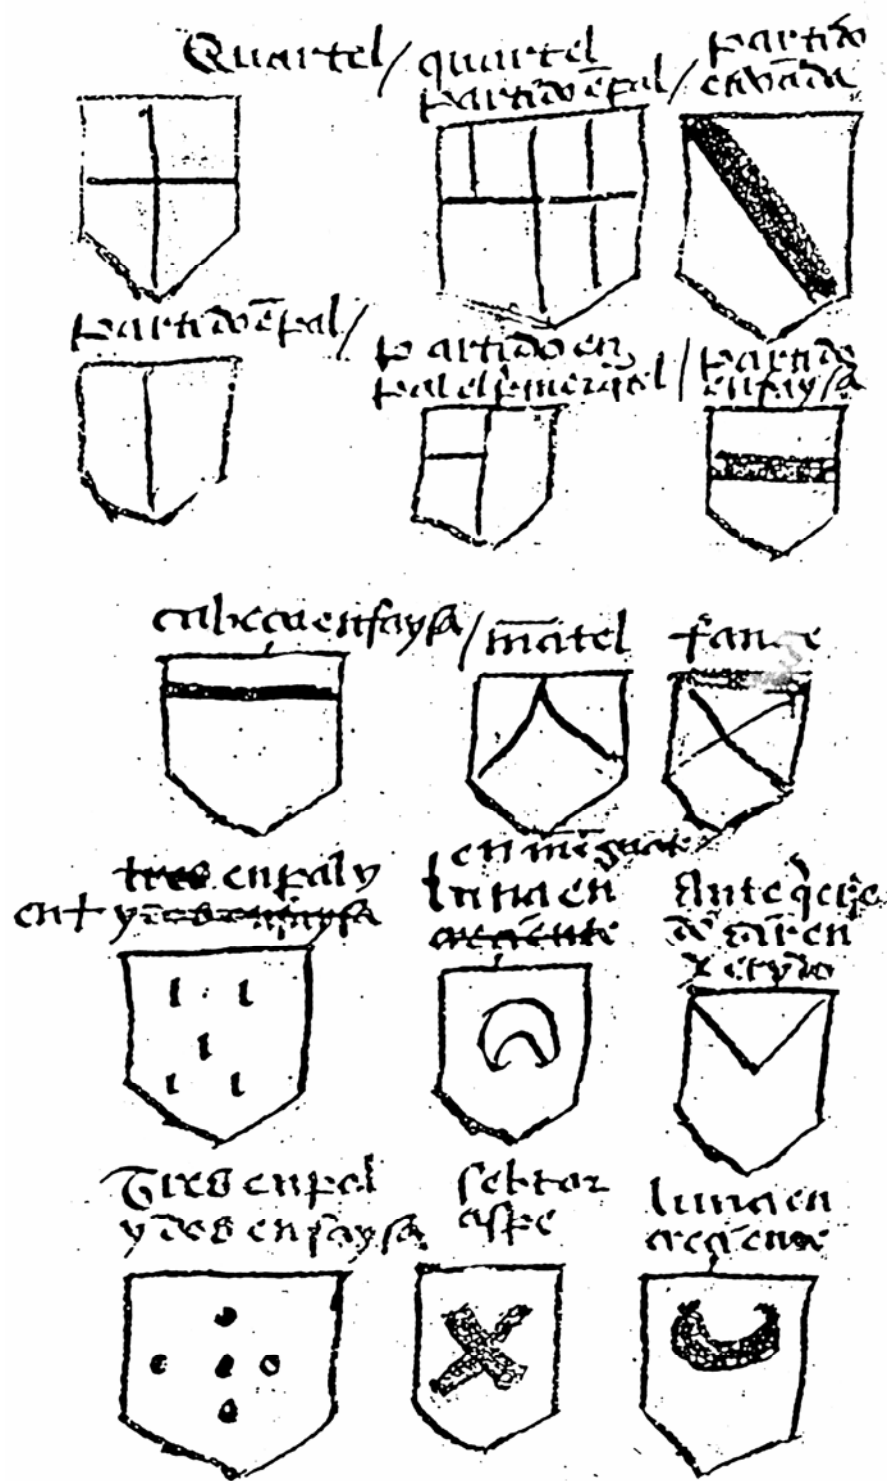 Quartel / quartel
partido ē pal /
partido
en vāda
partido ē pal /
partido en
pal el
/ partido
en faysa
cabeça en faysa /
mātel
françe
tres en pal y
en + y dos en faysa
en mēguāte
luna en
creciente
Ante
de
Tres en pal
y dos en faysa
aspe
luna en
creciente